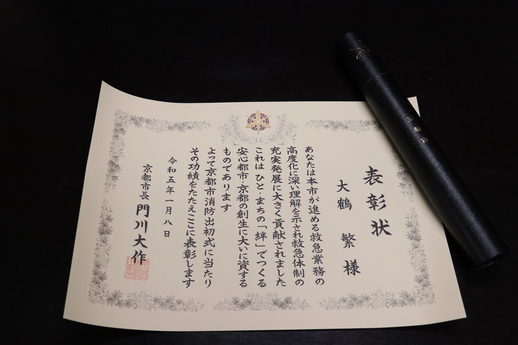 表彰状
大鶴 繁 様
あなたは本市が進める救急業務の
高度化に深い理解を示され救急体制の
充実発展に大きく貢献されました
これは ひと・まちの「絆」でつくる
安心都市・京都の創生に大いに資する
ものであります
よって京都市消防出初式に当たり
その功績をたたえここに表彰します
令和五年一月八日
京都市長 門川大作